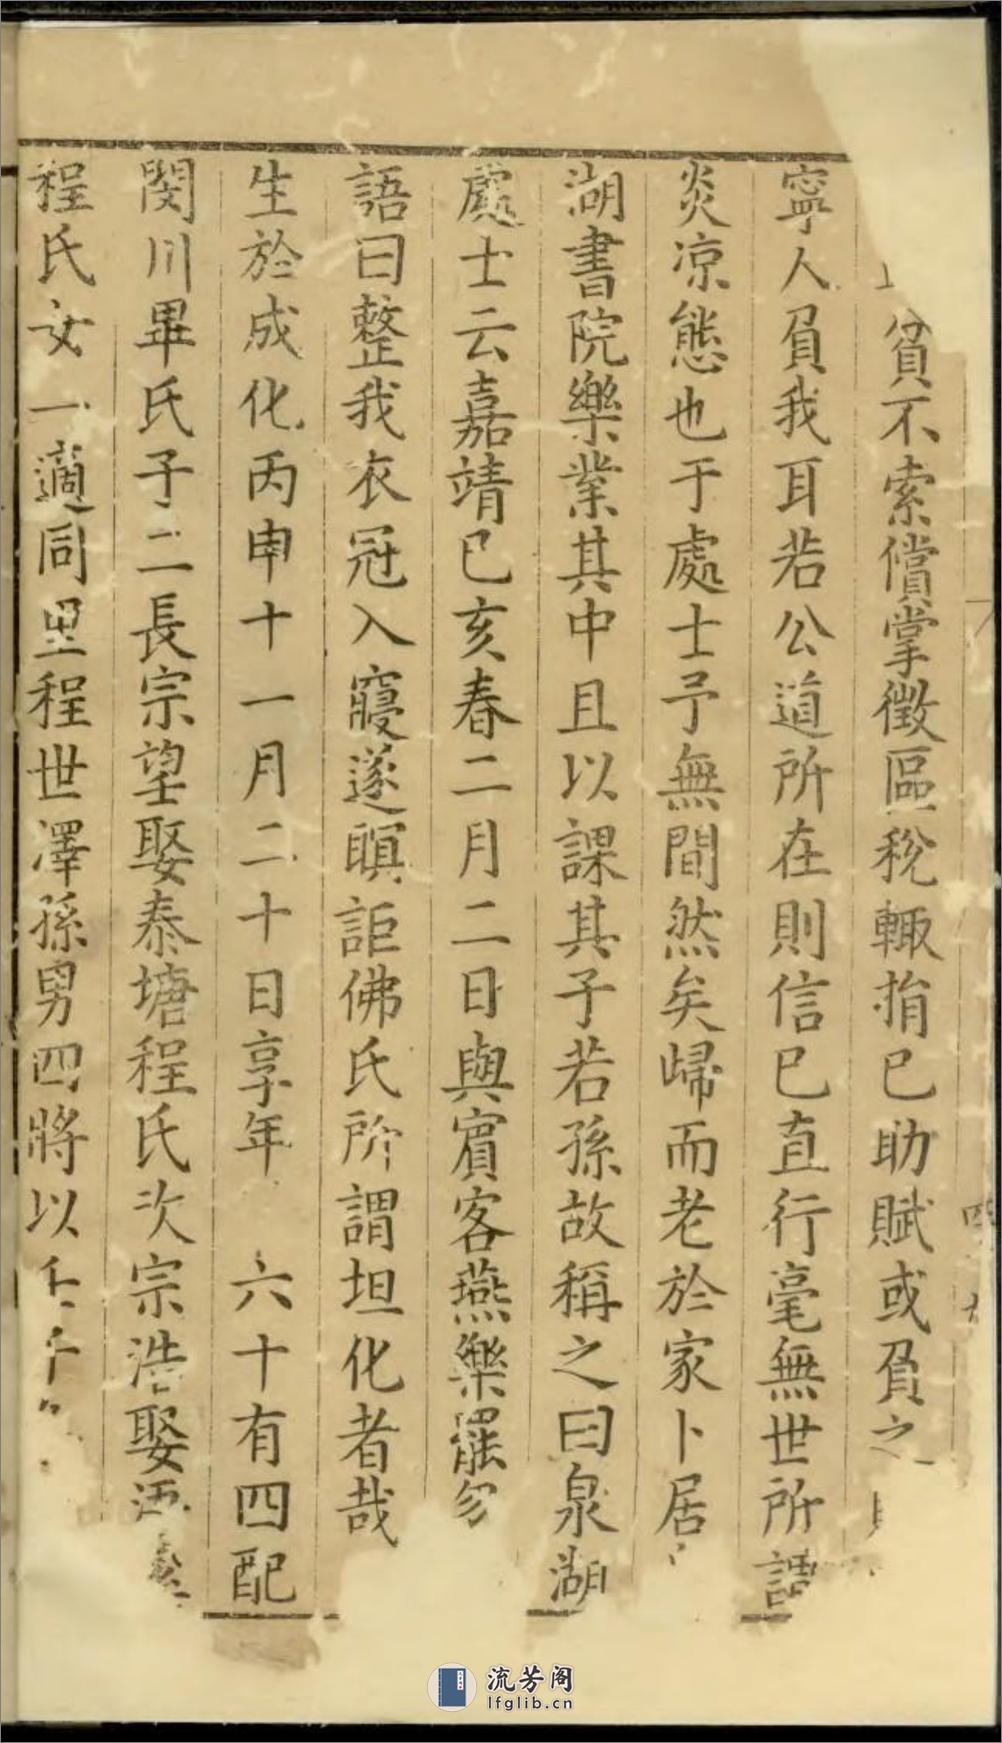 貧不索償掌徵區稅輙捐已助賦或負之
寧人負我耳若公道所在則信已直行毫無世所謂
炎凉態也于處士予無間然矣歸而老於家卜居
湖書院樂業其中且以課其子若孫故稱之曰泉湖
處士云嘉靖已亥春二月二日與賓客燕樂罷勿
語曰整我衣冠入寢遂瞑詎佛氏所謂坦化者哉
生於成化丙申十一月二十日享年 六十有四配
閔川畢氏子二長宗望娶泰塘程氏次宗浩娶
程氏女一適同里程世澤孫男四將以
流芳阁
lfglib.cn